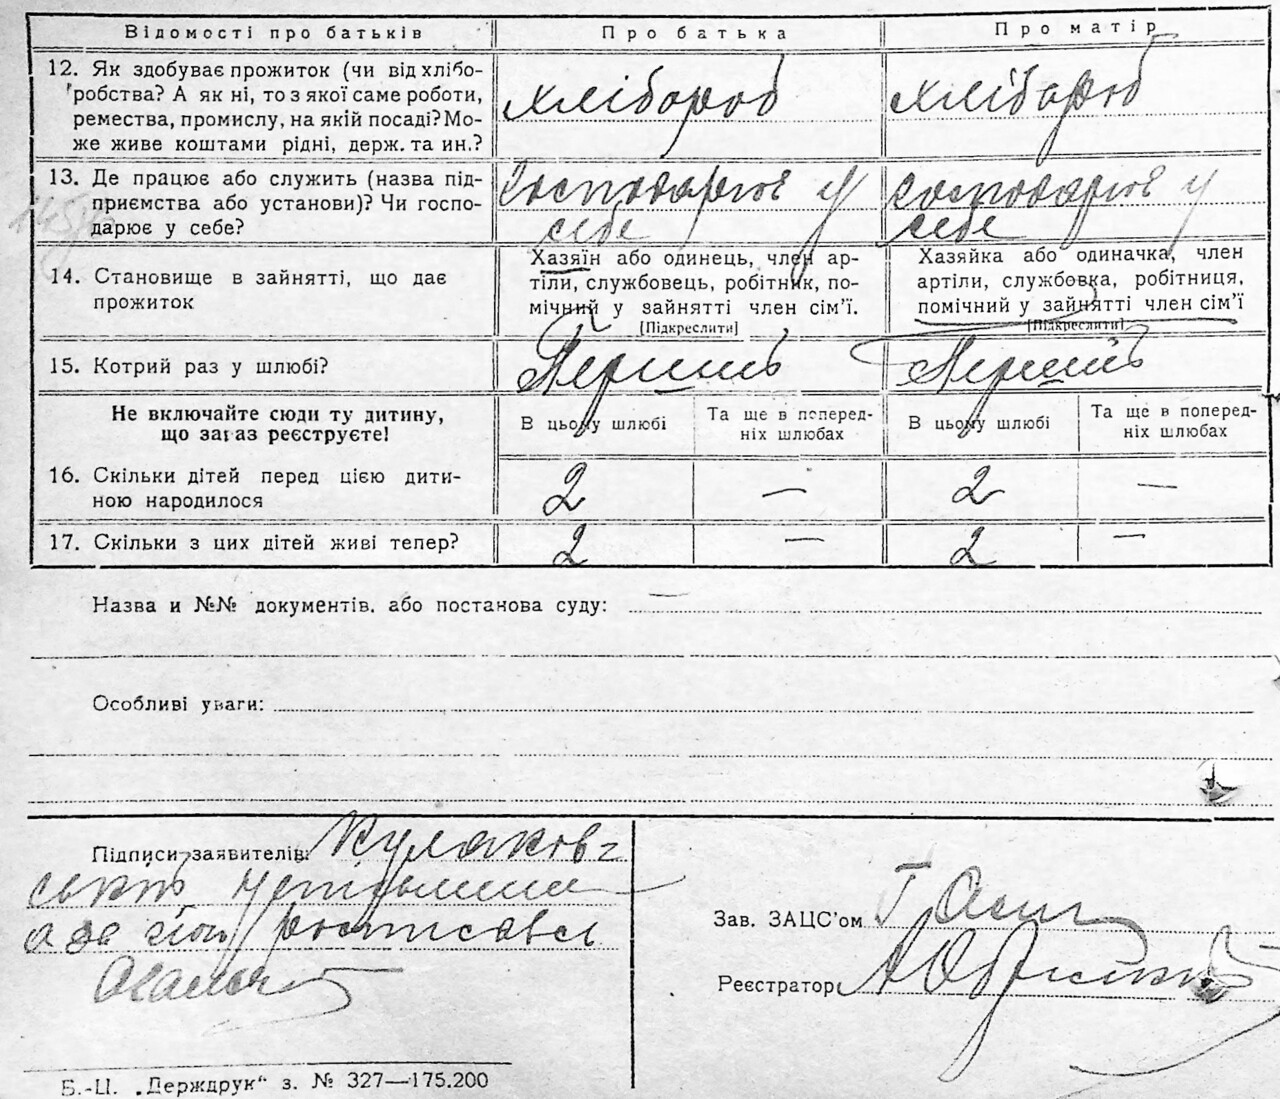 Відомості про батьків Про батька Про матір
12. Як здобуває прожиток (чи від хлібо-
робства? А як ні, то з якої саме роботи,
ремества, промислу, на якій посаді? Мо-
же живе коштами рідні, держ. та ин.?
хлібороб хлібороб
13. Де працює або служить (назва під-
приємства або установи)? Чи госпо-
дарює у себе?
Господарює у
себе
господарює у
себе
14. Становище в зайнятті, що дає
прожиток
Хазяїн або одинець, член ар-
тіли, службовець, робітник, по-
мічний у зайнятті член сім'ї.
[Підкреслити]
Хазяйка або одиначка, член
артіли, службовка, робітниця,
помічний у зайнятті член сім'ї
[Підкреслити]
15. Котрий раз у шлюбі?
Перший Перший
Не включайте сюди ту дитину,
що зараз реєструєте!
В цьому шлюбі
Та ще в поперед-
ніх шлюбах
В цьому шлюбі
Та ще в поперед-
ніх шлюбах
16. Скільки дітей перед цією дити-
ною народилося
2 — 2 —
17. Скільки з цих дітей живі тепер?
2 — 2 —
Назва и №№ документів. або постанова суду: —
Особливі уваги:
Підписи заявителів: Кулаков-
ський
а за його росписався
Зав. ЗАЦС'ом
Реєстратор
Б.-Ц. „Держдрук“ з. № 327—175.200